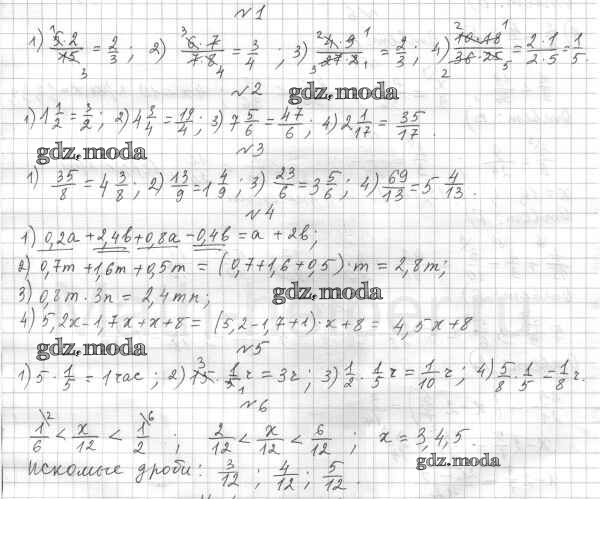 №1
1) 5·2/15 = 2/3; 2) 6·7/7·8 = 3/4; 3) 4·9/27·2 = 2/3; 4) 10·18/36·25 = 2·1/2·5 = 1/5.
№2
gdz.moda
1) 1 1/2 = 3/2; 2) 4 3/4 = 19/4; 3) 7 5/6 = 47/6; 4) 2 1/17 = 35/17.
gdz.moda
№3
1) 35/8 = 4 3/8; 2) 13/9 = 1 4/9; 3) 23/6 = 3 5/6; 4) 69/13 = 5 4/13.
№4
1) 0,2a + 2,4b + 0,8a - 0,4b = a + 2b;
2) 0,7m + 1,6m + 0,5m = (0,7+1,6+0,5)·m = 2,8m;
3) 0,8m · 3n = 2,4mn;
gdz.moda
4) 5,2x - 1,7x + x + 8 = (5,2-1,7+1)·x + 8 = 4,5x + 8.
gdz.moda
№5
1) 5 · 1/5 = 1 час; 2) 15 · 1/5 ч = 3ч; 3) 1/2 · 1/5 ч = 1/10 ч; 4) 5/8 · 1/5 = 1/8 ч.
№6
1/6 < x/12 < 1/2; 2/12 < x/12 < 6/12; x = 3,4,5.
gdz.moda
Искомые дроби: 3/12; 4/12; 5/12.